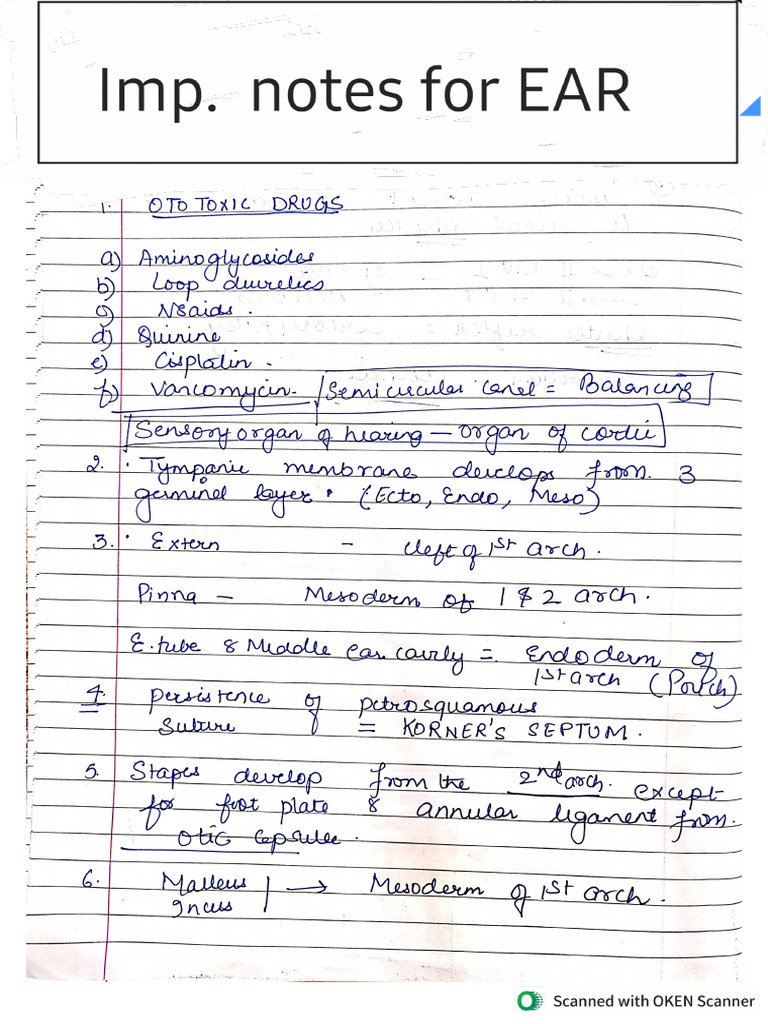 Imp. notes for EAR
1. OTOTOXIC DRUGS
a) Aminoglycosides
b) Loop diuretics
c) NSaids.
d) Quinine
e) Cisplatin.
f) Vancomycin. Semicircular canal = Balancing
Sensory organ of hearing – organ of cortii
2. • Tympanic membrane develops from 3
germinal layer • (Ecto, Endo, Meso)
3. • Extern - cleft of 1st arch.
Pinna – Mesoderm of 1 & 2 arch.
E.tube & Middle ear cavity = Endoderm of
1st arch (Pouch)
4. persistence of petrosquamous
Suture = KORNER'S SEPTUM.
5. Stapes develop from the 2nd arch. except
for foot plate & annular ligament from.
otic capsule.
6. Malleus → Mesoderm of 1st arch.
Incus
Scanned with OKEN Scanner